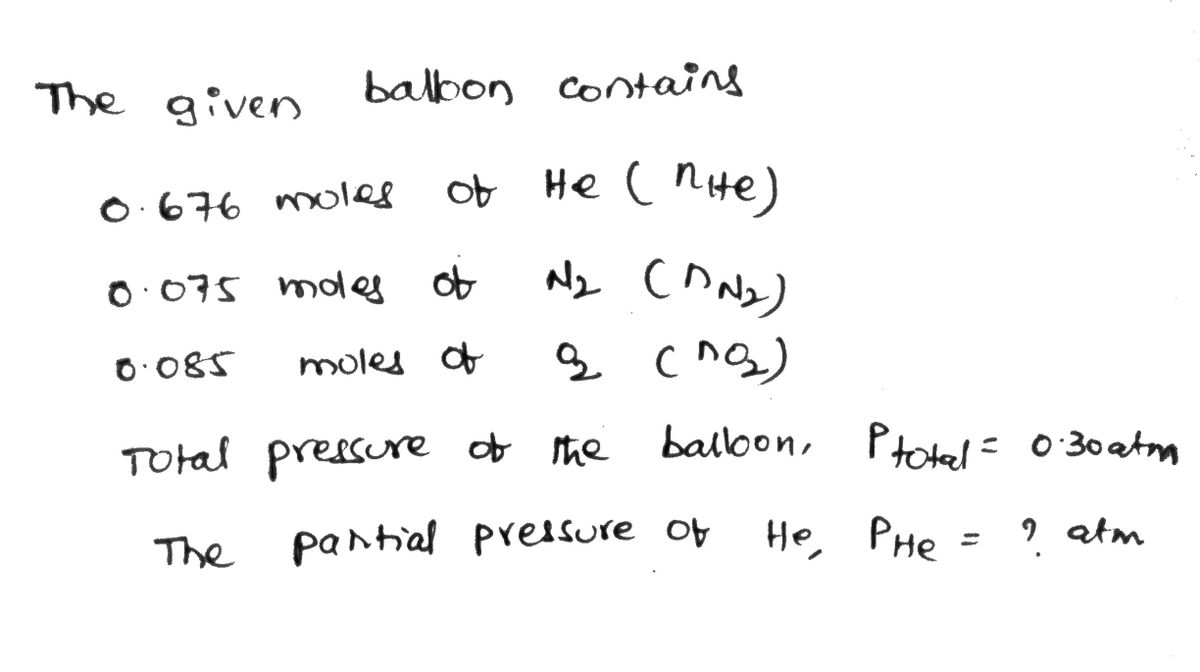 The given balloon contains
0.676 moles of He (nHe)
0.075 moles of N2 (nN2)
0.085 moles of O2 (nO2)
Total pressure of the balloon, Ptotal = 0.30atm
The partial pressure of He, PHe = ? atm